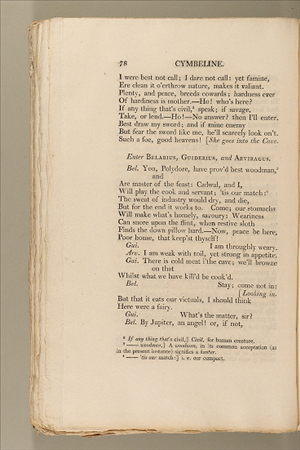 78 CYMBELINE.
I were best not call; I dare not call: yet famine,
Ere clean it o'erthrow nature, makes it valiant.
Plenty, and peace, breeds cowards; hardness ever
Of hardiness is mother.—Ho! who's here?
If any thing that's civil,⁸ speak; if savage,
Take, or lend.—Ho!—No answer? then I'll enter.
Best draw my sword; and if mine enemy
But fear the sword like me, he'll scarcely look on't.
Such a foe, good heavens! [She goes into the Cave.
Enter BELARIUS, GUIDERIUS, and ARVIRAGUS.
Bel. You, Polydore, have prov'd best woodman,⁹
and
Are master of the feast: Cadwal, and I,
Will play the cook and servant; 'tis our match:¹
The sweat of industry would dry, and die,
But for the end it works to. Come; our stomachs
Will make what's homely, savoury: Weariness
Can snore upon the flint, when restive sloth
Finds the down pillow hard.—Now, peace be here,
Poor house, that keep'st thyself!
Gui. I am throughly weary.
Arv. I am weak with toil, yet strong in appetite.
Gui. There is cold meat i'the cave; we'll browze
on that
Whilst what we have kill'd be cook'd.
Bel. Stay; come not in:
[Looking in.
But that it eats our victuals, I should think
Here were a fairy.
Gui. What's the matter, sir?
Bel. By Jupiter, an angel! or, if not,
⁸ If any thing that's civil,] Civil, for human creature.
⁹ —— woodman,] A woodman, in its common acceptation (as
in the present instance) signifies a hunter.
¹ —— 'tis our match:] i. e. our compact.